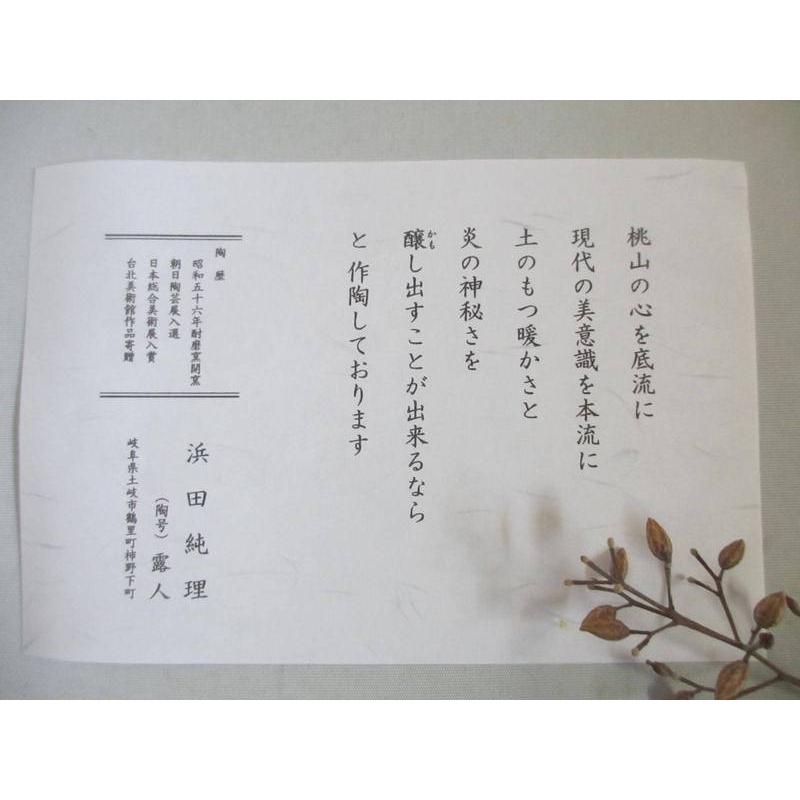 桃山の心を底流に
現代の美意識を本流に
土のもつ暖かさと
炎の神秘さを
醸し出すことが出来るなら
かも
と 作陶しております
陶歴
昭和五十六年耐磨窯開窯
朝日陶芸展入選
日本総合美術展入賞
台北美術館作品寄贈
浜田純理
(陶号) 露人
岐阜県土岐市鶴里町柿野下町